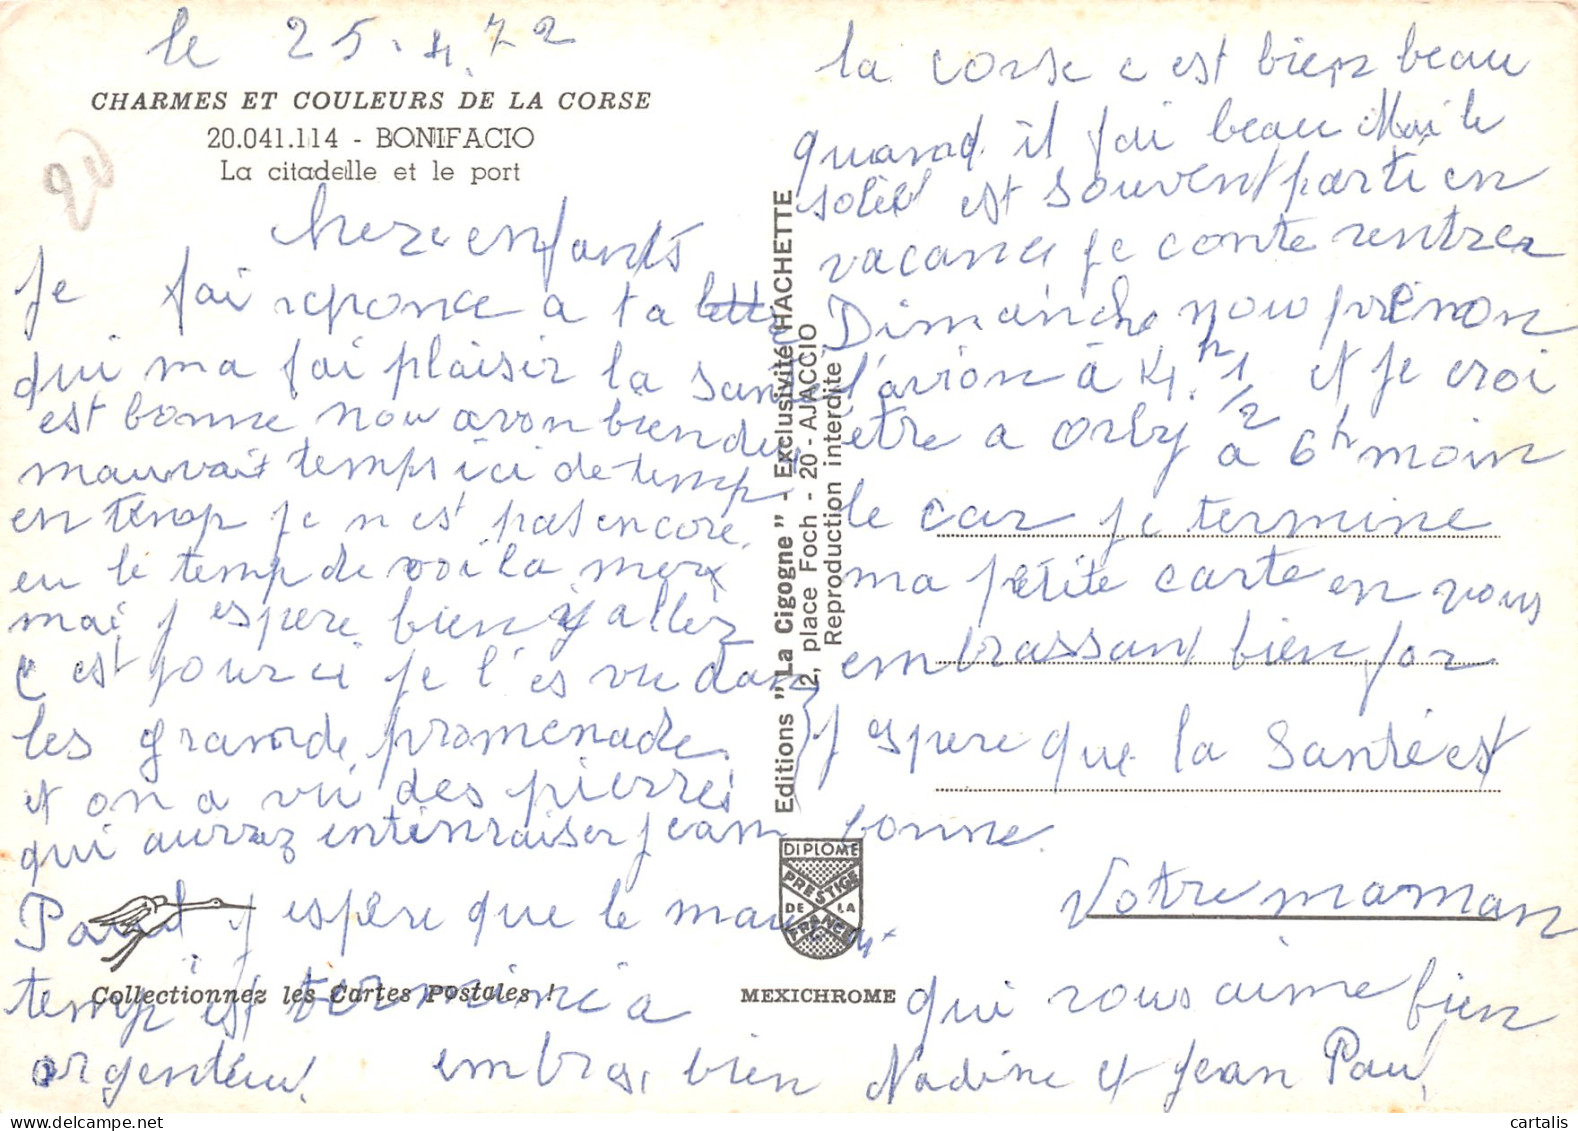 le 25.4.72
CHARMES ET COULEURS DE LA CORSE
20.041.114 - BONIFACIO
La citadelle et le port
20
chere enfants
Je fai reponce a ta lettre
qui ma fai plaisir la santé
est bonne nou avon bien du
mauvait temps ici de temp
en temp je n est pas encore
eu le temp de voi la mer
mai j espere bien y aller
c est pour ci je l'es vu dans
les grande promenade
et on a vu des pierres
qui aurrez intenraiser jean
Paul j espère que le mauv
temp est terminé a
argenteui embras bien
la corse c est bien beau
quand il fai beau Mai le
soleil est souvent parti en
vacance je conte rentrer
Dimanche nou prenon
l'avion à 4.h 1/2 et je croi
être a orly à 6h moin
le car je termine
ma petite carte en vous
embrassant bien for
j espere que la santé est
bonne.
Votre maman
qui vous aime bien
Nadine et Jean Paul
Editions "La Cigogne" - Exclusivité HACHETTE
2, place Foch - 20 - AJACCIO
Reproduction interdite
DIPLOME
PRESTIGE
DE LA
FRANCE
Collectionnez les Cartes Postales !
MEXICHROME
cartalis